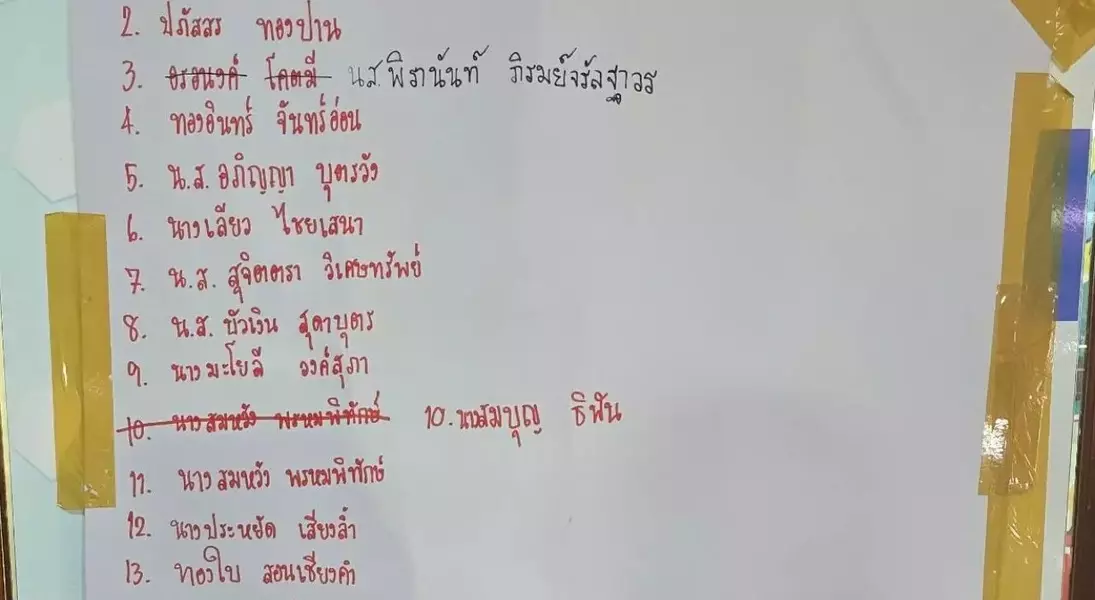 2. ปภัสสร ทองปาน
3. อรอนงค์ โคตมี น.ส.พิรานันท์ ภิรมย์จรัลฐาวร
4. ทองอินทร์ จันทร์อ่อน
5. น.ส. อภิญญา บุตรวัง
6. นางเลียว ไชยเสนา
7. น.ส. สุจิตตรา วิเศษทรัพย์
8. น.ส. บัวเงิน สุดาบุตร
9. นางมะโยลี วงค์สุภา
10. นางสมหวัง พรหมพิทักษ์ 10. นางสมบุญ ธิฟัน
11. นางสมหวัง พรหมพิทักษ์
12. นางประหยัด เสียงล้ำ
13. ทองใบ สอนเชียงคำ